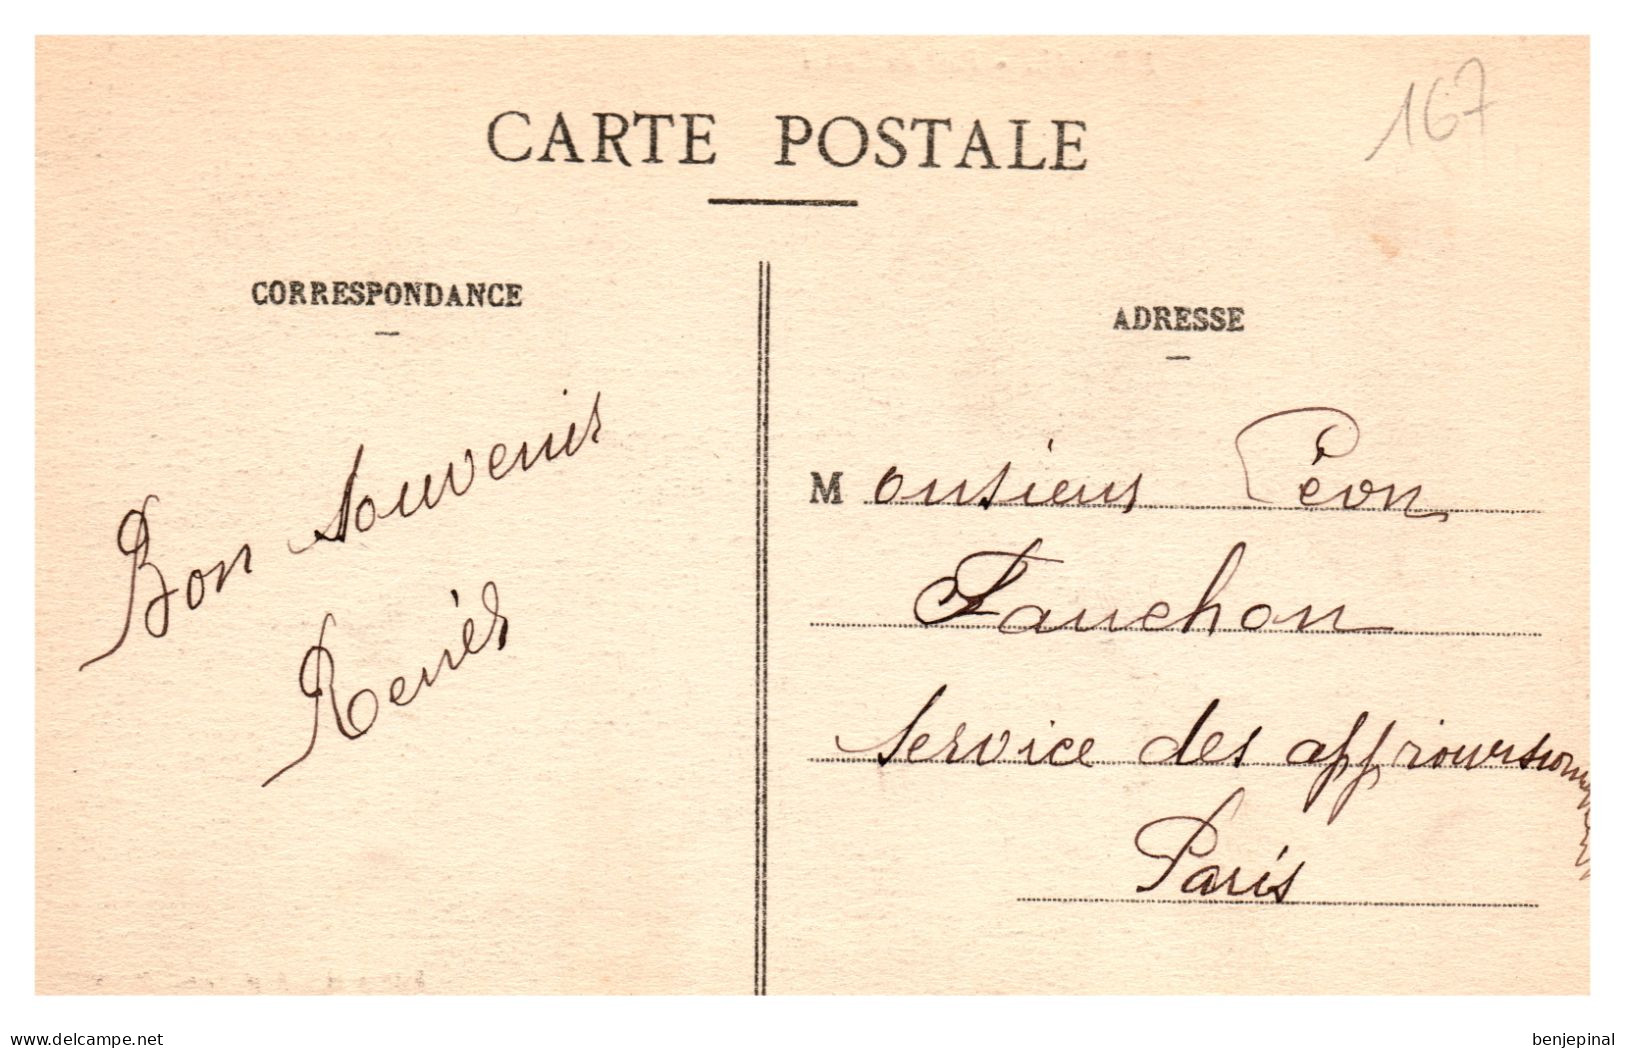 167
CARTE POSTALE
CORRESPONDANCE
Bon souvenir
ADRESSE
Monsieur Léon
Fauchon
Service des approvisionnements
Paris
www.delcampe.net
benjepinal